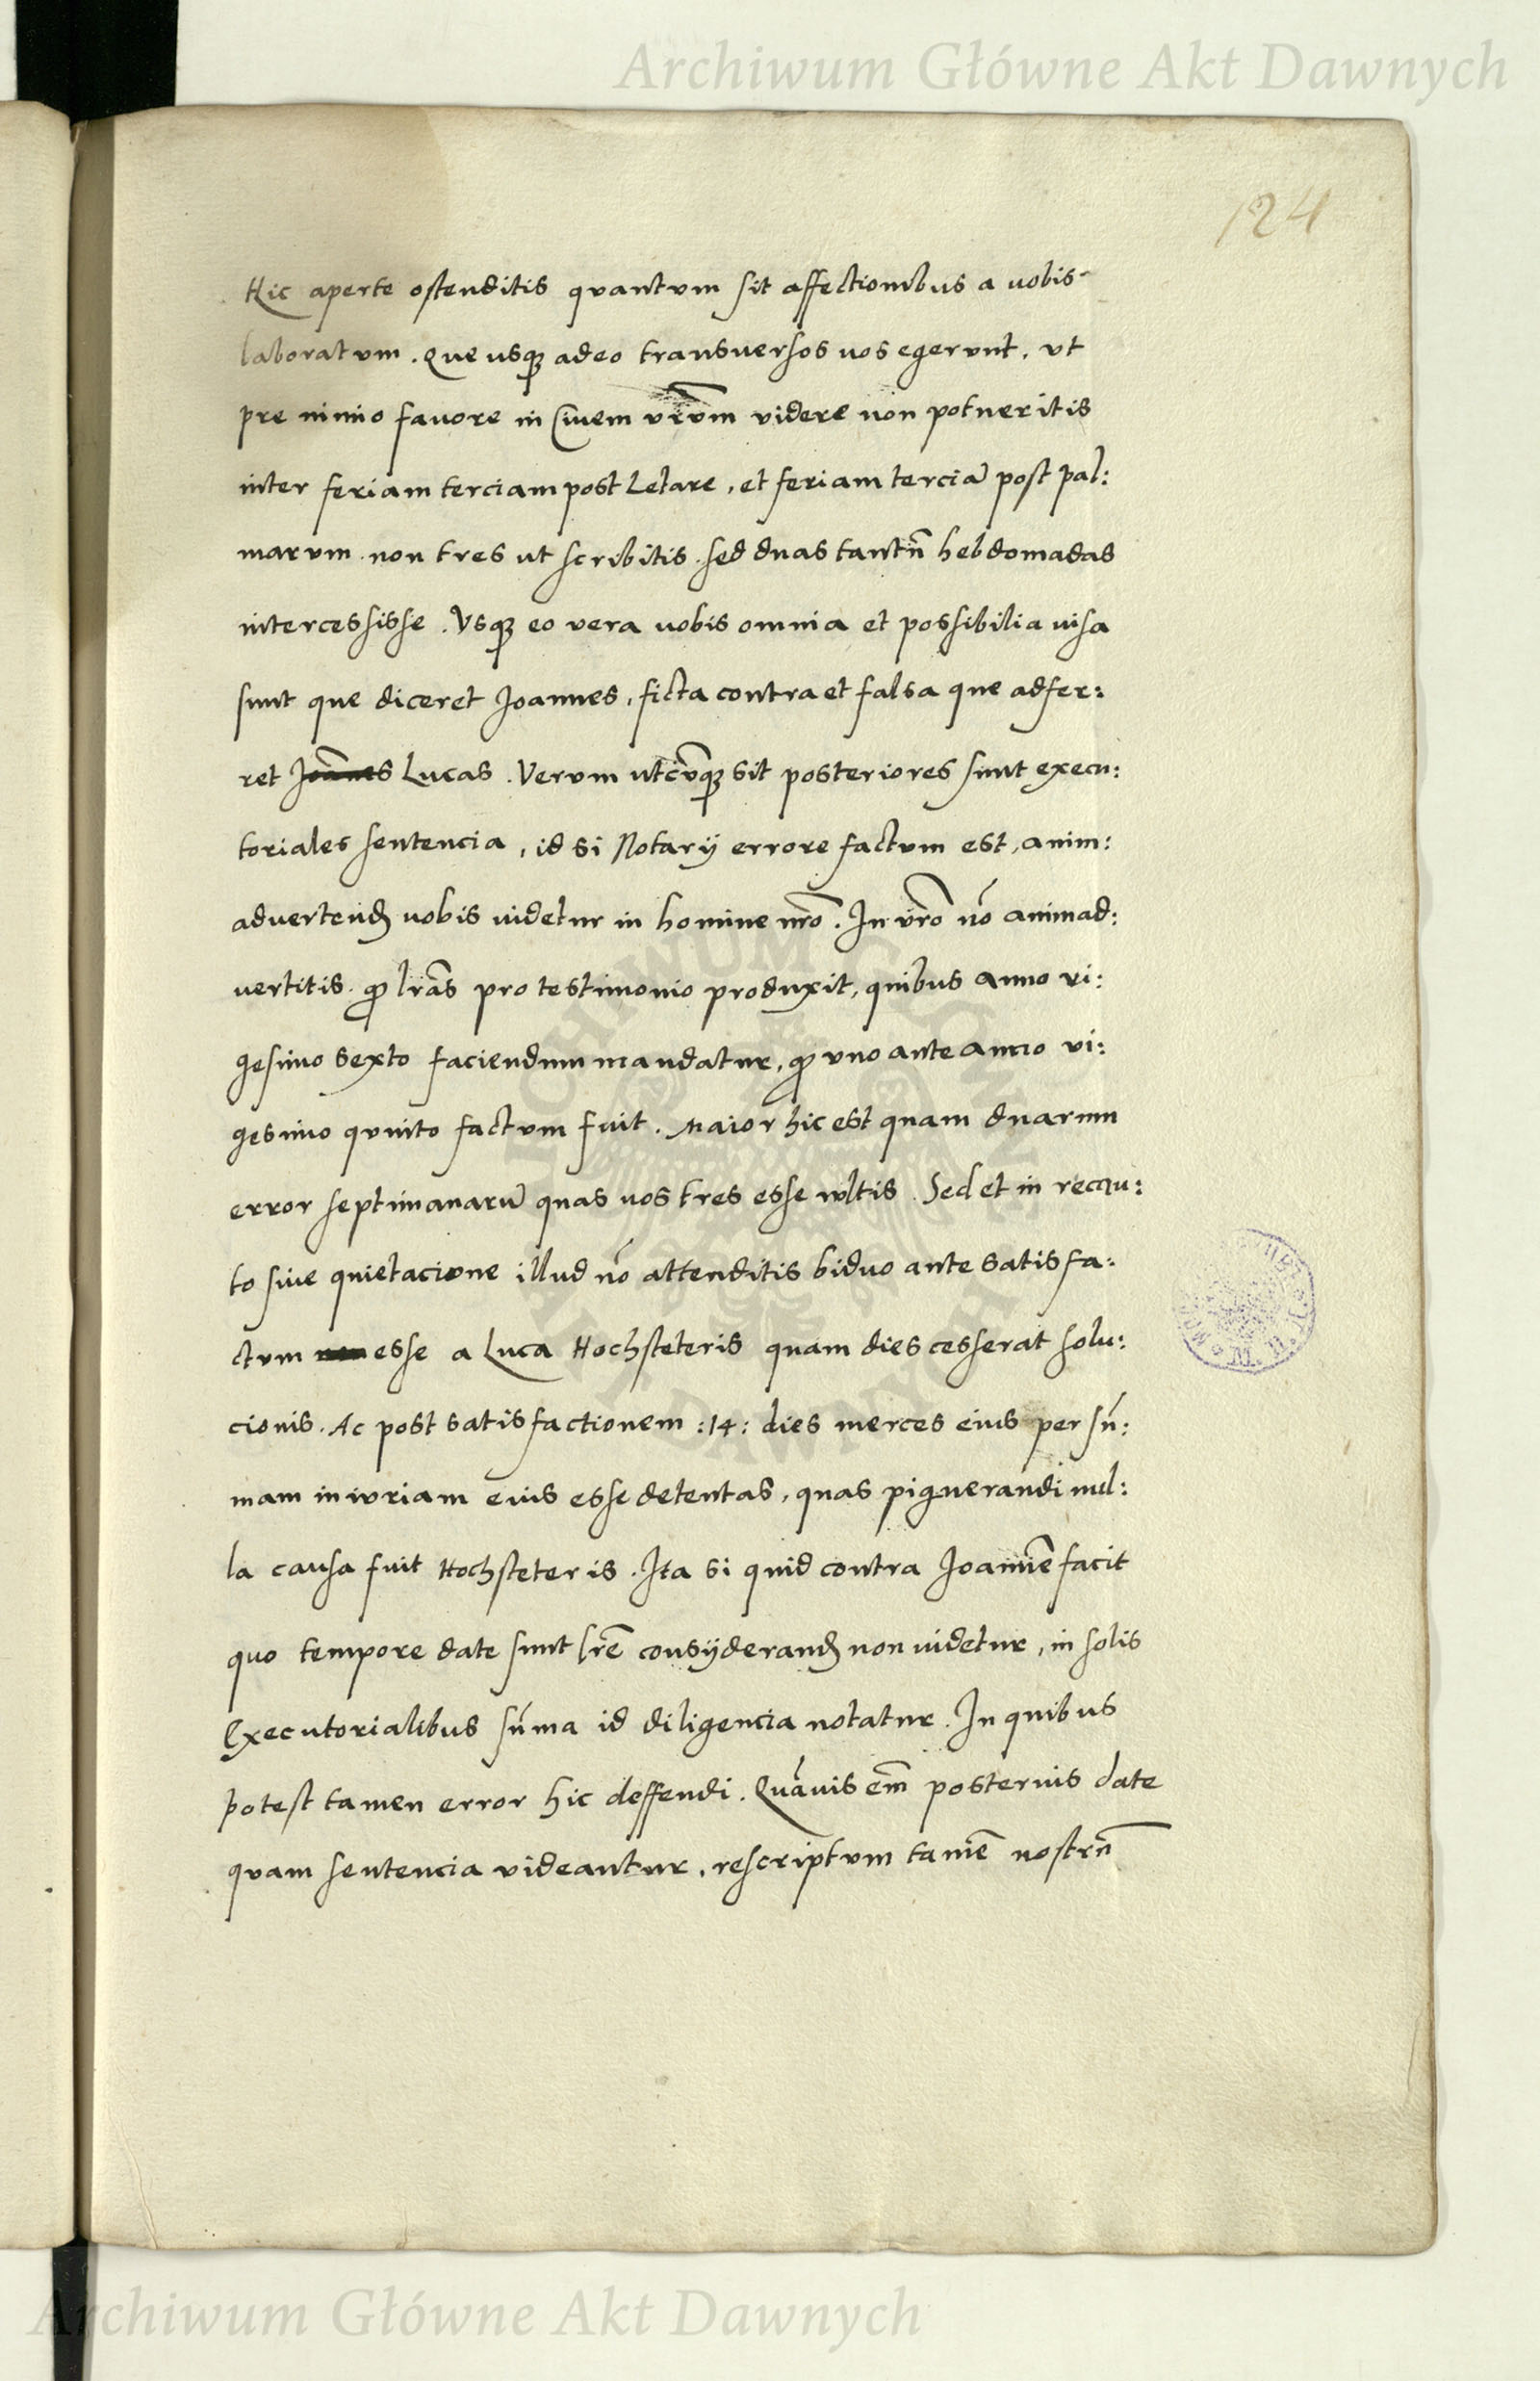 Archiwum Główne Akt Dawnych
124
Hic aperte ostenditis quantum sit affectionibus a uobis
laboratum. Que usq₃ adeo transuersos uos egerunt, ut
pre nimio fauore in Ciuem vr̄vm videre non potueritis
inter feriam terciam post Letare, et feriam terciā post pal:
marum non tres ut scribitis. sed duas tantū hebdomadas
intercessisse. Vsq₃ eo vera uobis omnia et possibilia uisa
sunt que diceret Joannes, ficta contra et falsa que adfer:
ret Joānes Lucas. Verum utcūq₃ sit posteriores sunt execu:
toriales sentencia, id si Notarij errore factum est, anim:
aduertend̄ uobis uidetur in homine nr̄o. In vr̄o nō animad:
vertitis. ꝙ lrās pro testimonio produxit, quibus anno vi:
gesimo sexto faciendum mandatur, ꝙ vno ante anno vi:
gesimo quinto factum fuit. Maior hic est quam duarum
error septimanarū quas uos tres esse vultis. Sed et in recqu:
to siue quietacione illud nō attenditis biduo ante satisfa:
ctum esse a Luca Hochsteteris quam dies cesserat solu:
cionis. Ac post satisfactionem :14: dies merces eius per sū:
mam iniuriam eius esse detentas, quas pignerandi nul:
la causa fuit Hochsteteris. Ita si quid contra Joannē facit
quo tempore date sunt lrē consyderand̄ non uidetur, in solis
Executorialibus sūma id diligencia notatur. In quibus
potest tamen error hic deffendi. Quāuis em̄ posterius date
quam sentencia videantur, rescriptum tamē nostrū
Archiwum Główne Akt Dawnych